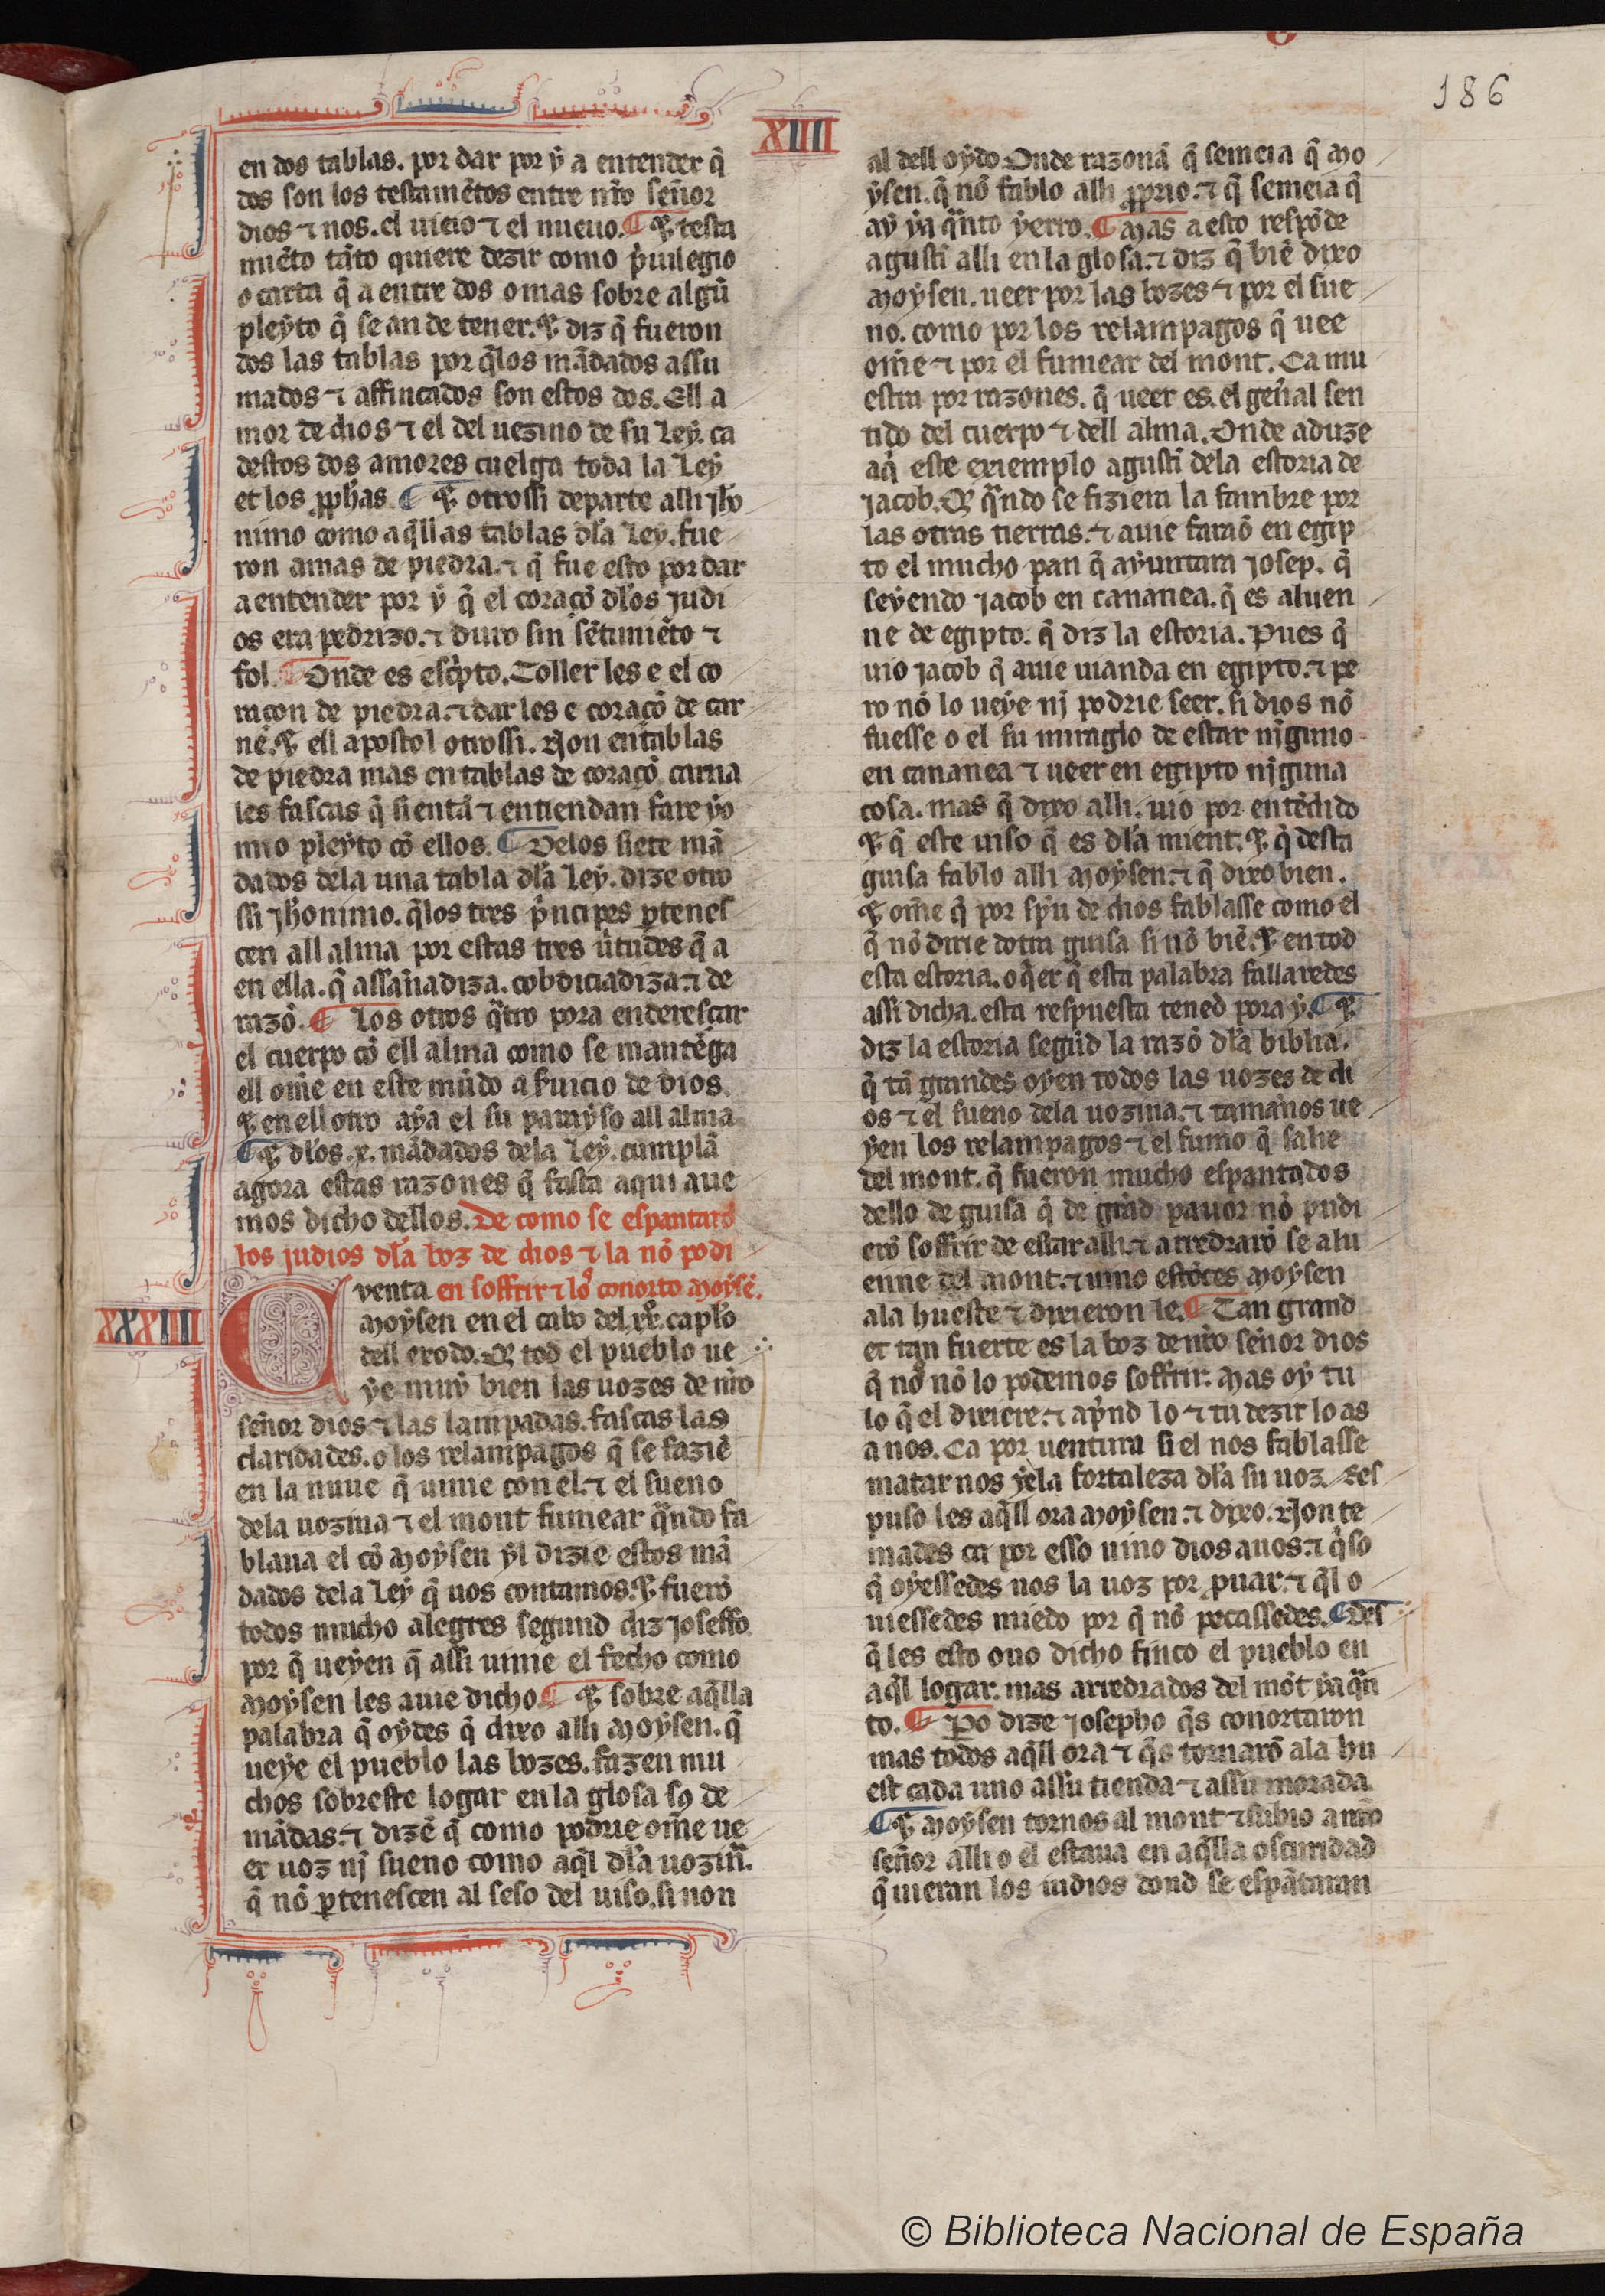 186
XIIII
en dos tablas. por dar por ý a entender q̃
dos son los testamẽtos entre nr̃o señor
dios ⁊ nos. el uieio ⁊ el nueuo. ¶ ⁊ testa
mẽto tãto quiere dezir como p̃uilegio
o carta q̃ a entre dos o mas sobre algũ
pleyto q̃ se an de tener. ⁊ diz q̃ fueron
dos las tablas por q̃los mãdados assu
mados ⁊ affincados son estos dos. Ell a
mor de dios ⁊ el del uezino de su Ley. ca
destos dos amores cuelga toda la Ley
et los ꝓph̃as. ¶ ⁊ otrossi departe alli jh̃o
nimo como aq̃llas tablas dl̃a Ley. fue
ron amas de piedra. ⁊ q̃ fue esto por dar
a entender por ý q̃ el coraçõ dl̃os judi
os era pedrizo. ⁊ duro sin sẽtimiẽto ⁊
fol. ¶ Onde es esc̃pto. Toller les e el co
raçon de piedra. ⁊ dar les e coraçõ de car
ne. ⁊ ell apostol otrossi. Non en tablas
de piedra mas en tablas de coraçõ carna
les fascas q̃ sientã ⁊ entiendan fare yo
mio pleyto cõ ellos. ¶ Delos siete mã
dados dela una tabla dl̃a Ley. dize otro
ssi jh̃onimo. q̃los tres p̃ncipes ꝑtenes
cen all alma por estas tres ũtudes q̃ a
en ella. q̃ assañadiza. cobdiciadiza. ⁊ de
razõ. ¶ Los otros q̃tro pora enderesçar
el cuerpo cõ ell alma como se mantẽga
ell om̃e en este mũdo a s̃uicio de dios.
⁊ en ell otro aya el su parayso all alma
¶ ⁊ dl̃os .x. mãdados dela Ley. cumplã
agora estas razones q̃ fasta aqui aue
mos dicho dellos. De como se espantarõ
los judios dl̃a boz de dios ⁊ la nõ podi
en soffrir ⁊ los conorto Moysẽ.
XXXIIII
Cventa
Moysen en el cabo del .xx. capl̃o
dell exodo. Q̃ tod el pueblo ue
ye muy bien las uozes de nr̃o
señor dios ⁊ las lampadas. fascas las
claridades. o los relampagos q̃ se faziẽ
en la nuue q̃ uinie con el. ⁊ el sueno
dela uozina ⁊ el mont fumear q̃ndo fa
blaua el cõ Moysen yl dizie estos mã
dados dela Ley q̃ uos contamos. ⁊ fuerõ
todos mucho alegres segund diz josefo
por q̃ ueyen q̃ assi uinie el fecho como
Moysen les auie dicho. ¶ ⁊ sobre aq̃lla
palabra q̃ oydes q̃ dixo alli Moysen. q̃
ueye el pueblo las bozes. fazen mu
chos sobreste logar en la glosa so de
mãdas. ⁊ dizẽ q̃ como podrie om̃e ue
er uoz nj sueno como aq̃l dl̃a uozin̄.
q̃ nõ ꝑtenescen al seso del uiso. si non
al dell oydo. Onde razonã q̃ semeia q̃ Mo
ysen. q̃ nõ fablo alli ꝓprio. ⁊ q̃ semeia q̃
ay ya q̃nto yerro. ¶ Mas a esto respõde
agusti alli en la glosa. ⁊ diz q̃ biẽ dixo
Moysen. ueer por las bozes ⁊ por el sue
no. como por los relampagos q̃ uee
om̃e ⁊ por el fumear del mont. Ca mu
estra por razones. q̃ ueer es. el geñal sen
tido del cuerpo ⁊ dell alma. Onde aduze
aq̃ este exiemplo agusti dela estoria de
jacob. Q̃ q̃ndo se fiziera la fambre por
las otras tierras. ⁊ auie faraõ en egip
to el mucho pan q̃ ayuntara josep. q̃
seyendo jacob en cananea. q̃ es aluen
ne de egipto. q̃ diz la estoria. Pues q̃
uio jacob q̃ auie uianda en egipto. ⁊ pe
ro nõ lo ueye nj podrie seer. si dios nõ
fuesse o el su miraglo de estar njguno
en cananea ⁊ ueer en egipto njguna
cosa. mas q̃ dixo alli. uio por entẽdido
⁊ q̃ este uiso q̃ es dl̃a mient. ⁊ q̃ desta
guisa fablo alli Moysen. ⁊ q̃ dixo bien.
⁊ om̃e q̃ por sp̃u de dios fablasse como el
q̃ nõ dirie dotra guisa si nõ biẽ. ⁊ en tod
esta estoria. o q̃er q̃ esta palabra fallaredes
assi dicha. esta respuesta tened pora y. ¶ ⁊
diz la estoria segũd la razõ dl̃a biblia.
q̃ tã grandes oyen todos las uozes de di
os ⁊ el sueno dela uozina. ⁊ tamaños ue
yen los relampagos ⁊ el fumo q̃ salie
del mont. q̃ fueron mucho espantados
dello de guisa q̃ de grãd pauor nõ pudi
erõ soffrir de estar alli. ⁊ arredrarõ se alu
enne del mont. ⁊ uino estõces Moysen
ala hueste ⁊ dixieron le. ¶ Tan grand
et tan fuerte es la boz de nr̃o señor dios
q̃ nos nõ lo podemos soffrir. Mas oy tu
lo q̃ el dixiere. ⁊ ap̃nd lo ⁊ tu dezir lo as
a nos. Ca por uentura si el nos fablasse
matar nos ye la fortaleza dl̃a su uoz. Res
puso les aq̃ll ora Moysen. ⁊ dixo. Non te
mades ca por esso uino dios a uos. ⁊ q̃so
q̃ oyessedes uos la uoz por ꝓuar. ⁊ q̃l o
uiessedes miedo por q̃ nõ pecassedes. ¶ Des
q̃ les esto ouo dicho finco el pueblo en
aq̃l logar. mas arredrados del mõt yaq̃n
to. ¶ Po dize josepho q̃s conortaron
mas todos aq̃ll ora ⁊ q̃s tornarõ ala hu
est cada uno assu tienda ⁊ assu morada.
¶ ⁊ Moysen tornos al mont ⁊ subio a nr̃o
señor alli o el estaua en aq̃lla oscuridad
q̃ uieran los iudios dond se espãtaran
© Biblioteca Nacional de España